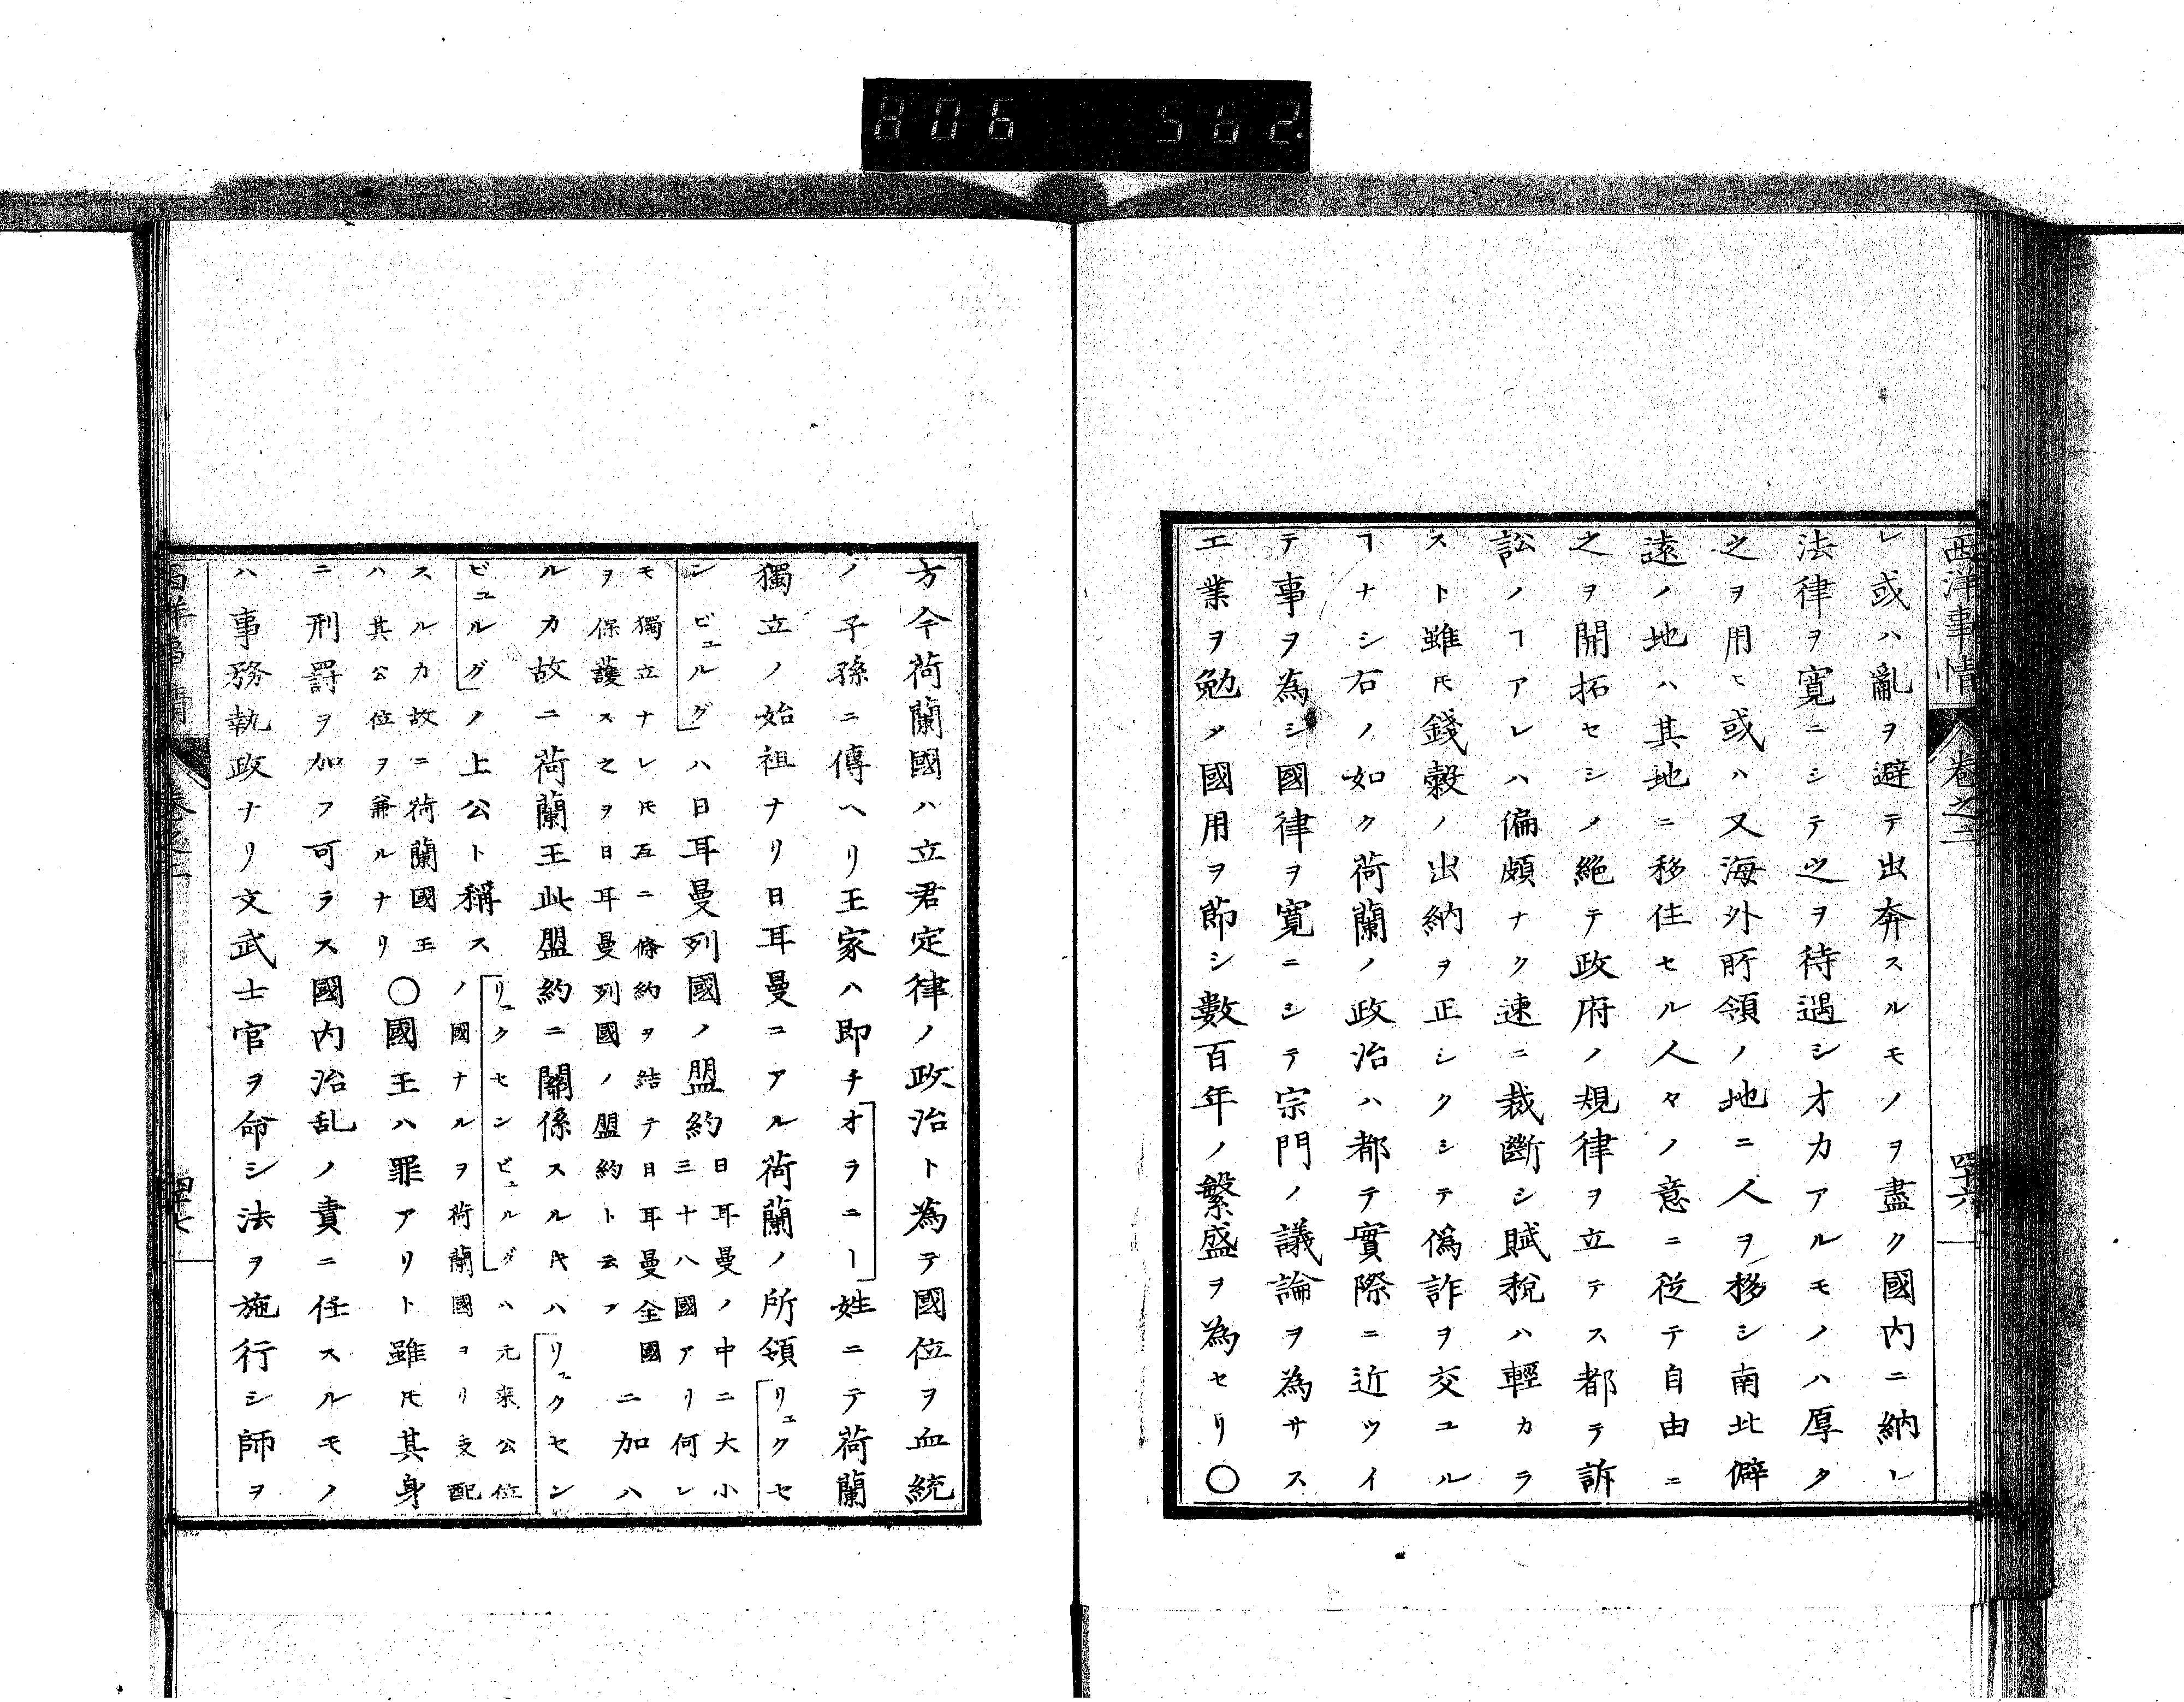 806 562.
西洋事情 卷之二 四十六
レ或ハ亂ヲ避テ出奔スルモノヲ盡ク國内ニ納レ
法律ヲ寛ニシテ之ヲ待遇シオカアルモノハ厚ク
之ヲ用ヒ或ハ又海外所領ノ地ニ人ヲ移シ南北僻
遠ノ地ハ其地ニ移住セル人々ノ意ニ從テ自由ニ
之ヲ開拓セシメ絶テ政府ノ規律ヲ立テス都テ訴
訟ノヿアレハ偏頗ナク速ニ裁斷シ賦税ハ輕カラ
スト雖𪜈錢穀ノ出納ヲ正シクシテ偽詐ヲ交ユル
ヿナシ右ノ如ク荷蘭ノ政治ハ都テ實際ニ近ツイ
テ事ヲ為シ國律ヲ寛ニシテ宗門ノ議論ヲ為サス
工業ヲ勉メ國用ヲ節シ數百年ノ繁盛ヲ為セリ〇
方今荷蘭國ハ立君定律ノ政治ト為テ國位ヲ血統
ノ子孫ニ傳ヘリ王家ハ即チオラニー姓ニテ荷蘭
獨立ノ始祖ナリ日耳曼ニアル荷蘭ノ所領リュクセ
ンビュルグハ日耳曼列國ノ盟約日耳曼ノ中ニ大小三十八國アリ何レ
モ獨立ナレ𪜈互ニ條約ヲ結テ日耳曼全國ヲ保護ス之ヲ日耳曼列國ノ盟約ト云フニ加ハ
ルカ故ニ荷蘭王此盟約ニ關係スルキハリュクセン
ビュルグノ上公ト稱スリュクセンビュルグハ元来公位ノ國ナルヲ荷蘭國ヨリ支配
スルカ故ニ荷蘭國王ハ其公位ヲ兼ルナリ〇國王ハ罪アリト雖𪜈其身
ニ刑罰ヲ加フ可ラス國内治乱ノ責ニ任スルモノ
ハ事務執政ナリ文武士官ヲ命シ法ヲ施行シ師ヲ
西洋事情 卷之二 四十七